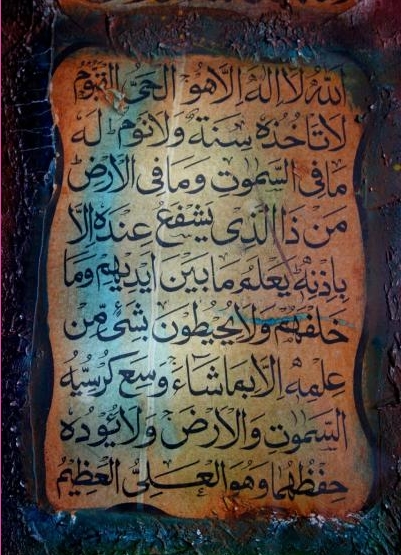 اللّٰهُ لَا اِلٰهَ اِلَّا هُوَ الْحَيُّ الْقَيُّوْمُ
لَا تَاْخُذُهٗ سِنَةٌ وَّلَا نَوْمٌ لَهٗ
مَا فِى السَّمٰوٰتِ وَمَا فِى الْاَرْضِ
مَنْ ذَا الَّذِىْ يَشْفَعُ عِنْدَهٗٓ اِلَّا
بِاِذْنِهٖ يَعْلَمُ مَا بَيْنَ اَيْدِيْهِمْ وَمَا
خَلْفَهُمْ وَلَا يُحِيْطُوْنَ بِشَىْءٍ مِّنْ
عِلْمِهٖٓ اِلَّا بِمَا شَآءَ وَسِعَ كُرْسِيُّهُ
السَّمٰوٰتِ وَالْاَرْضَ وَلَا يَـُٔوْدُهٗ
حِفْظُهُمَا وَهُوَ الْعَلِىُّ الْعَظِيْمُ